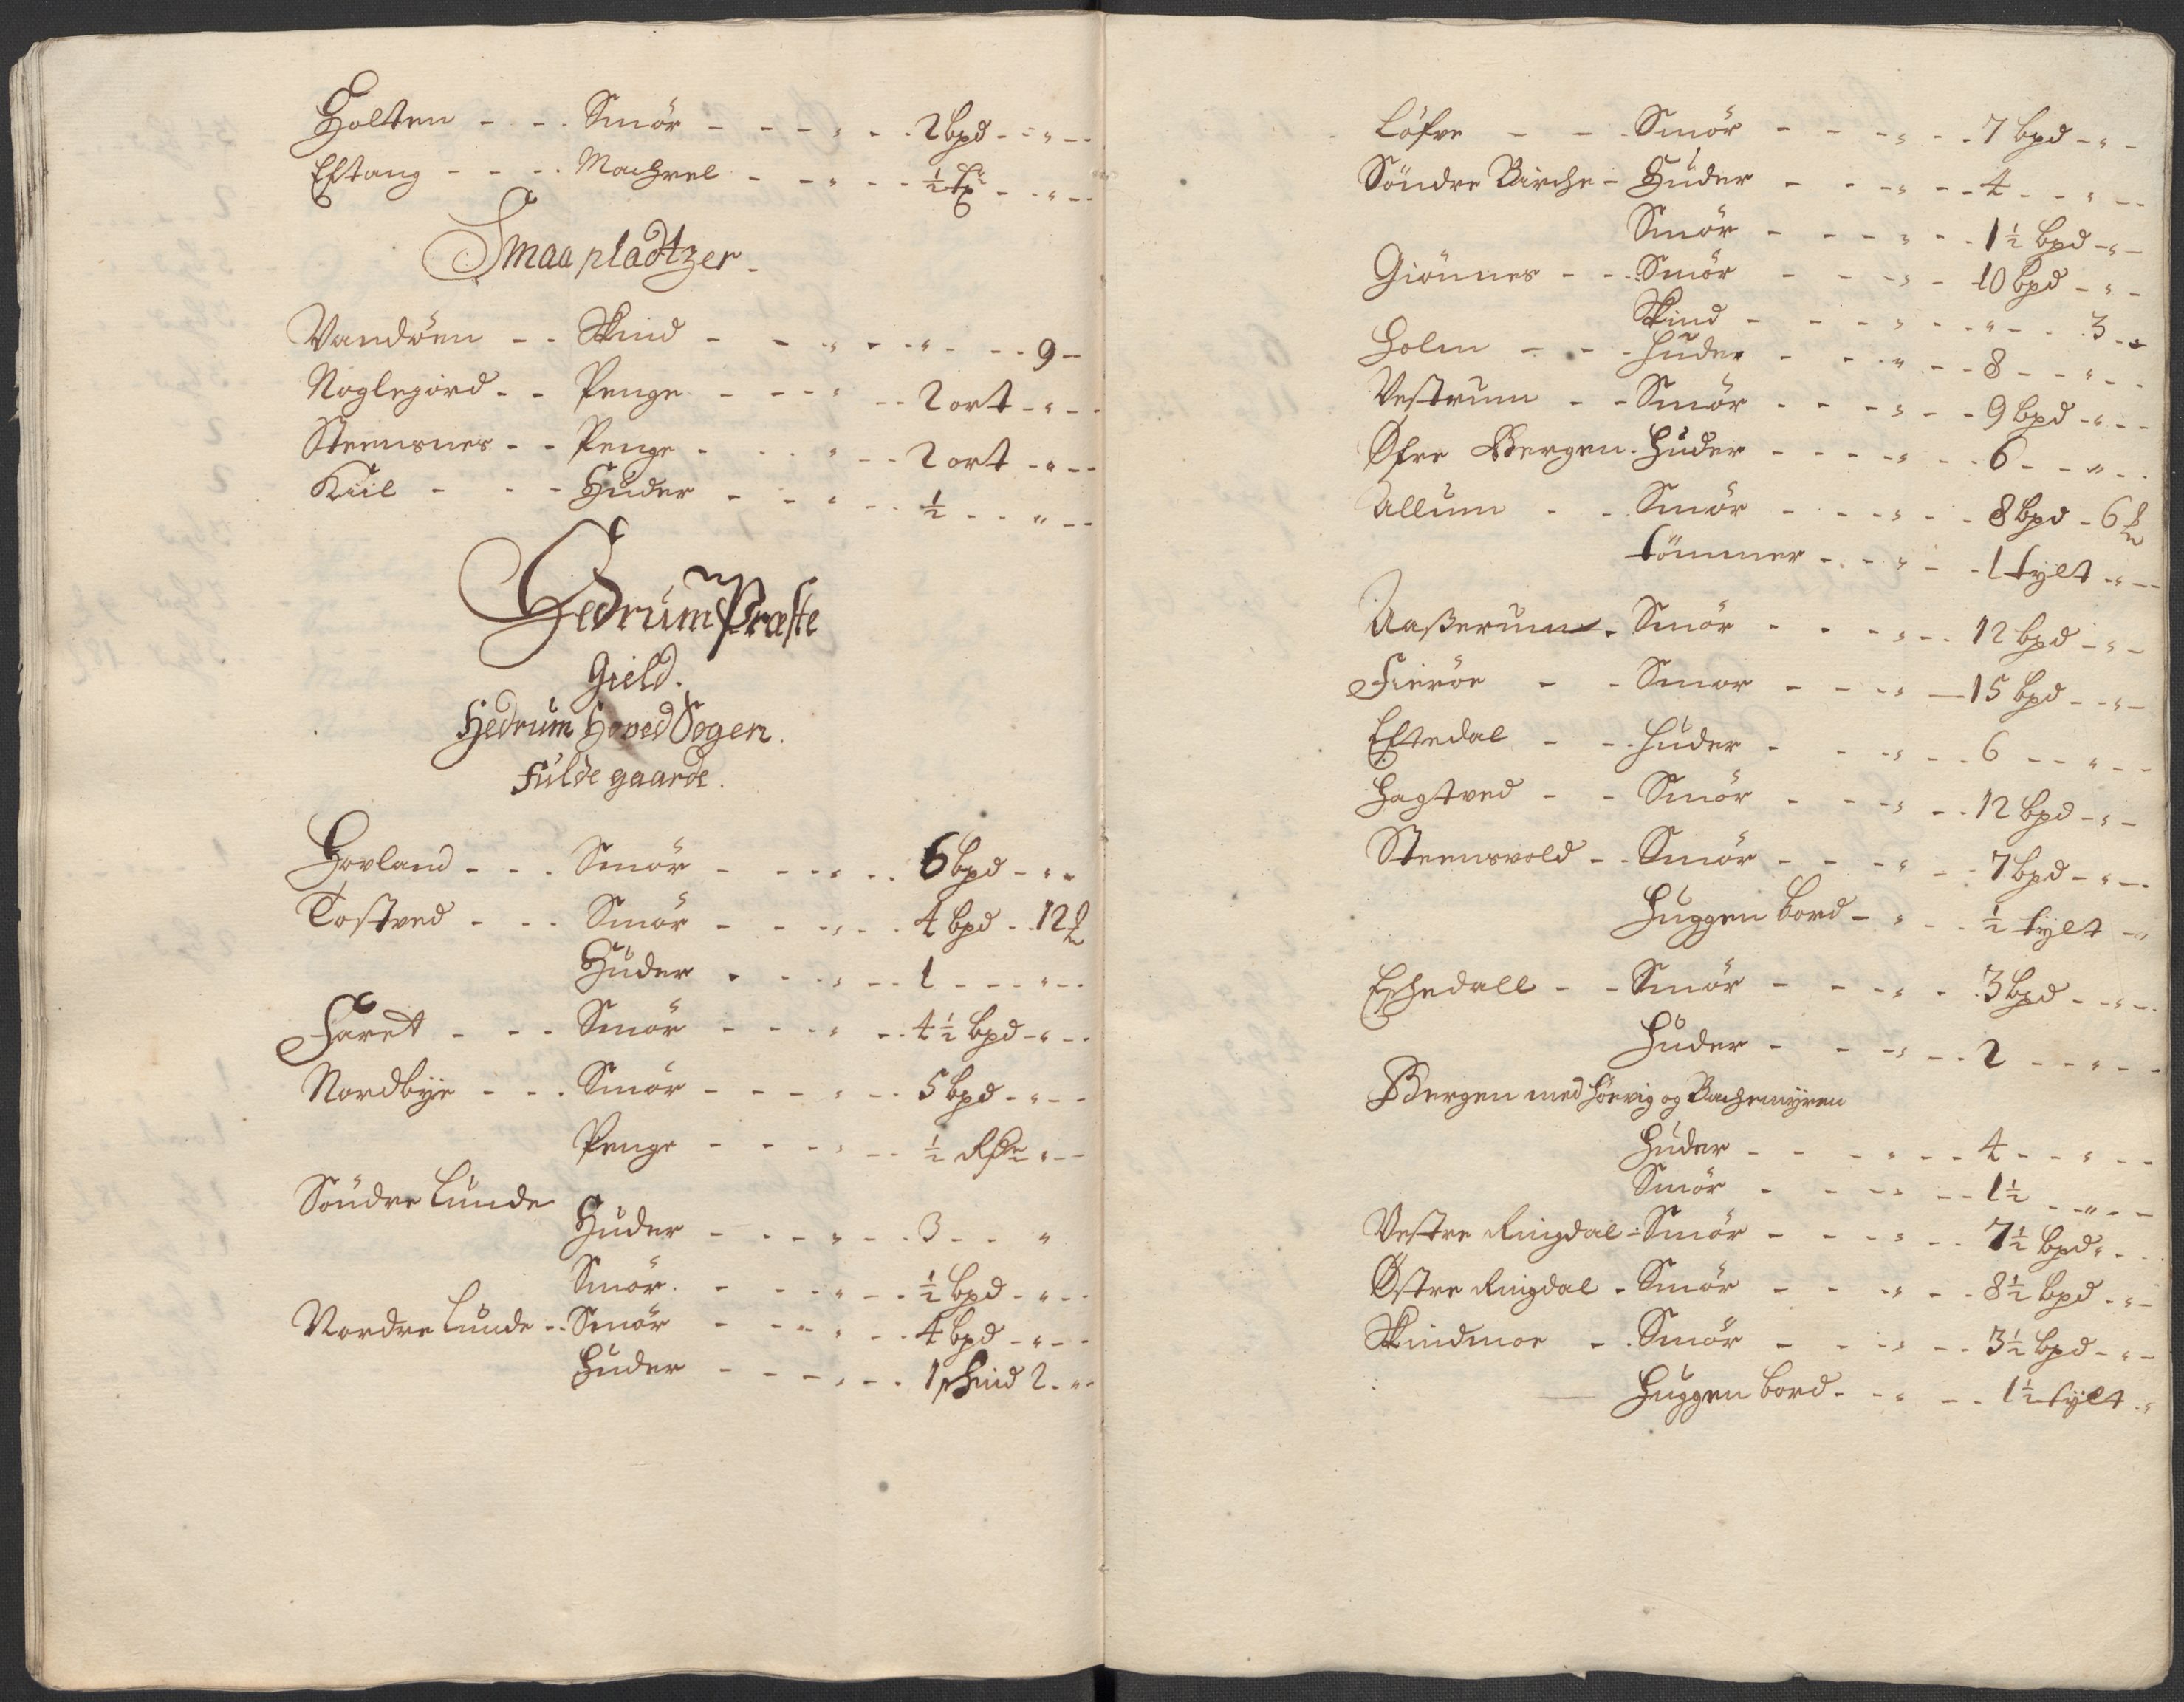 Holten - - - Smör - - - „ - - 2 bpd - - „ - -
Eftang - - - Machrel - - „ - - ½ - - „ - -
Smaa pladtzer.
Vandöen - - Skind - - „ - - „ - - 9 -
Noglegord - - Penge - - - „ - - 2 ort - „ - -
Steensnes - - Penge - - - „ - - 2 ort - „ - -
Kiil - - - Huder - - „ - - ½ - - „ - -
Hedrum Præste
Gield.
Hedrum Hoved Sogen.
Fulde gaarde.
Hovland - - - Smör - - - „ - - 6 bpd - „ -
Tostved - - - Smör - - - „ - - 4 bpd - - 12 ℔
Huder - - - „ - - 1 - - - „ - -
Faret - - - Smör - - - „ - - 4½ bpd - „ - -
Nordbye - - - Smör - - - „ - - 5 bpd - „ - -
Penge - - - „ - - ½ Rdr „ - -
Söndre Lunde
Huder - - - „ - - 3 - - „
Smör - - - „ - - ½ bpd - „ - -
Nordre Lunde - - Smör - - - „ - - 4 bpd - „ - -
Huder - - - „ - - 1 skind 2 - „ -
Löfve - - - Smör - - - „ - - 7 bpd - „ -
Söndre Birche - Huder - - - „ - - 4 - - „ - -
Smör - - - „ - - 1½ bpd - „ -
Giönnes - - - Smör - - - „ - 10 bpd - „ -
Skind - - - „ - - „ - - 3 - -
Holm - - - Huder - - - „ - - 8 - - „ - -
Vestrum - - Smör - - - „ - - 9 bpd - „ - -
Öfre Bergen - Huder - - - „ - - 6 - - „ - -
Allum - - Smör - - - „ - - 8 bpd - 6 ℔
Tömmer - - - „ - - 1 tylt - „ - -
Aaßerum - Smör - - - „ - - 12 bpd - „ -
Fieröe - - Smor - - - „ - 15 bpd - - „ -
Eftedal - - Huder - - - „ - - 6 - - „ - -
Hagtved - - Smör - - - „ - - 12 bpd - „ -
Steensvold - - Smör - - - „ - - 7 bpd - „ - -
Huggen bord - „ - - ½ tylt - „
Eschedall - - Smör - - - „ - - 3 bpd - - „ - -
Huder - - - „ - - 2 - - „ - -
Bergen med Höevig og Bachemyren
Huder - - - „ - - 4 - - „ - -
Smör - - - „ - - 1½ - - „ - -
Vestre Ringdal - Smör - - - „ - - 7½ bpd „ - -
Östre Ringdal - Smör - - - „ - - 8½ bpd - „ -
Skindmoe - - Smör - - - „ - - 3½ bpd - „ -
Huggen bord - - „ - - 1½ tylt - „